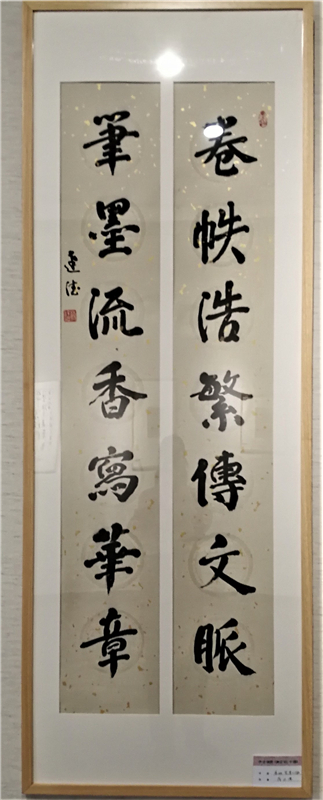 卷帙浩繁傳文脈
筆墨流香寫華章